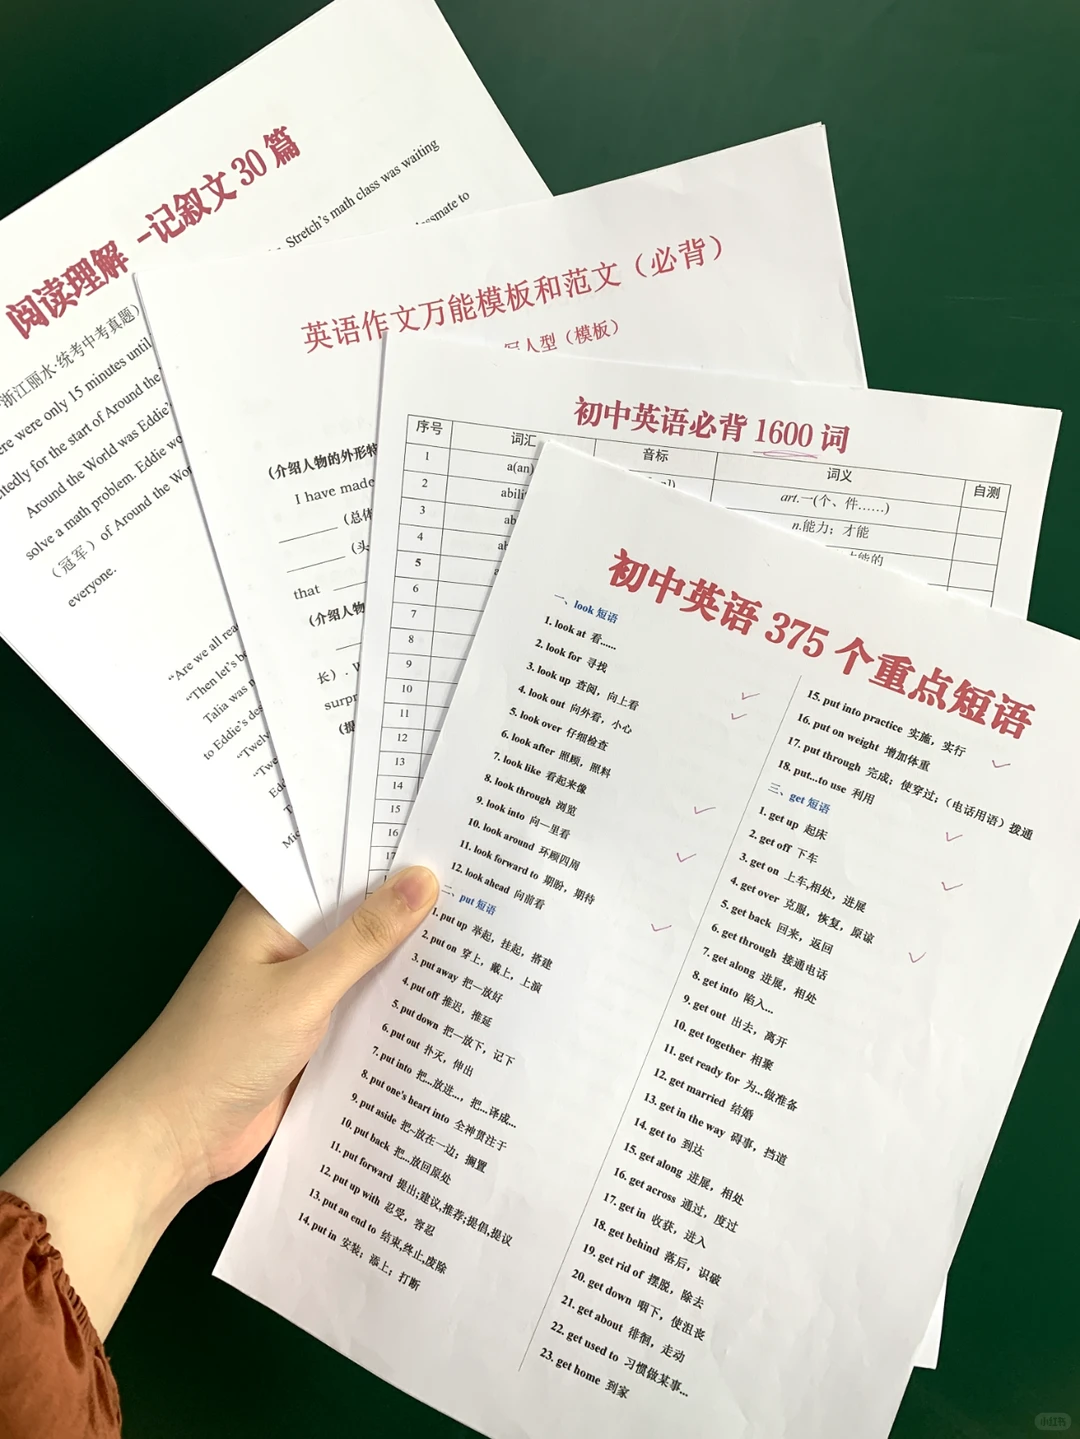 阅读理解 -记叙文 30 篇
浙江丽水·统考中考真题）
ere were only 15 minutes until
Stretch's math class was waiting
itedly for the start of Around the
ssmate to
Around the World was Eddie'
solve a math problem. Eddie wo
（冠军）of Around the Wor
everyone.
"Are we all rea
"Then let's be
Talia was
to Eddie's des
"Twelv
"Twe
英语作文万能模板和范文（必背）
写人型（模板）
(介绍人物的外形特
I have made
（总体
（头
that
（介绍人物
长）.
surpr
初中英语必背 1600 词
序号 词汇 音标 词义 自测
1 a(an) art.一(个、件……)
2 abili n.能力；才能
3 ab 才能的
4 ab
5 a
6
7
8
9
10
11
12
13
14
15
16
初中英语 375 个重点短语
一、look 短语
1. look at 看......
2. look for 寻找
3. look up 查阅，向上看
4. look out 向外看，小心
5. look over 仔细检查
6. look after 照顾，照料
7. look like 看起来像
8. look through 浏览
9. look into 向—里看
10. look around 环顾四周
11. look forward to 期盼，期待
12. look ahead 向前看
二、put 短语
1. put up 举起，挂起，搭建
2. put on 穿上，戴上，上演
3. put away 把—放好
4. put off 推迟，推延
5. put down 把—放下，记下
6. put out 扑灭，伸出
7. put into 把...放进...，把...译成...
8. put one's heart into 全神贯注于
9. put aside 把~放在一边；搁置
10. put back 把...放回原处
11. put forward 提出;建议,推荐;提倡,提议
12. put up with 忍受，容忍
13. put an end to 结束,终止,废除
14. put in 安装；添上；打断
15. put into practice 实施，实行
16. put on weight 增加体重
17. put through 完成；使穿过；（电话用语）拨通
18. put...to use 利用
三、get 短语
1. get up 起床
2. get off 下车
3. get on 上车,相处，进展
4. get over 克服，恢复，原谅
5. get back 回来，返回
6. get through 接通电话
7. get along 进展，相处
8. get into 陷入...
9. get out 出去，离开
10. get together 相聚
11. get ready for 为...做准备
12. get married 结婚
13. get in the way 碍事，挡道
14. get to 到达
15. get along 进展，相处
16. get across 通过，度过
17. get in 收获，进入
18. get behind 落后，识破
19. get rid of 摆脱，除去
20. get down 咽下，使沮丧
21. get about 徘徊，走动
22. get used to 习惯做某事...
23. get home 到家
小红书